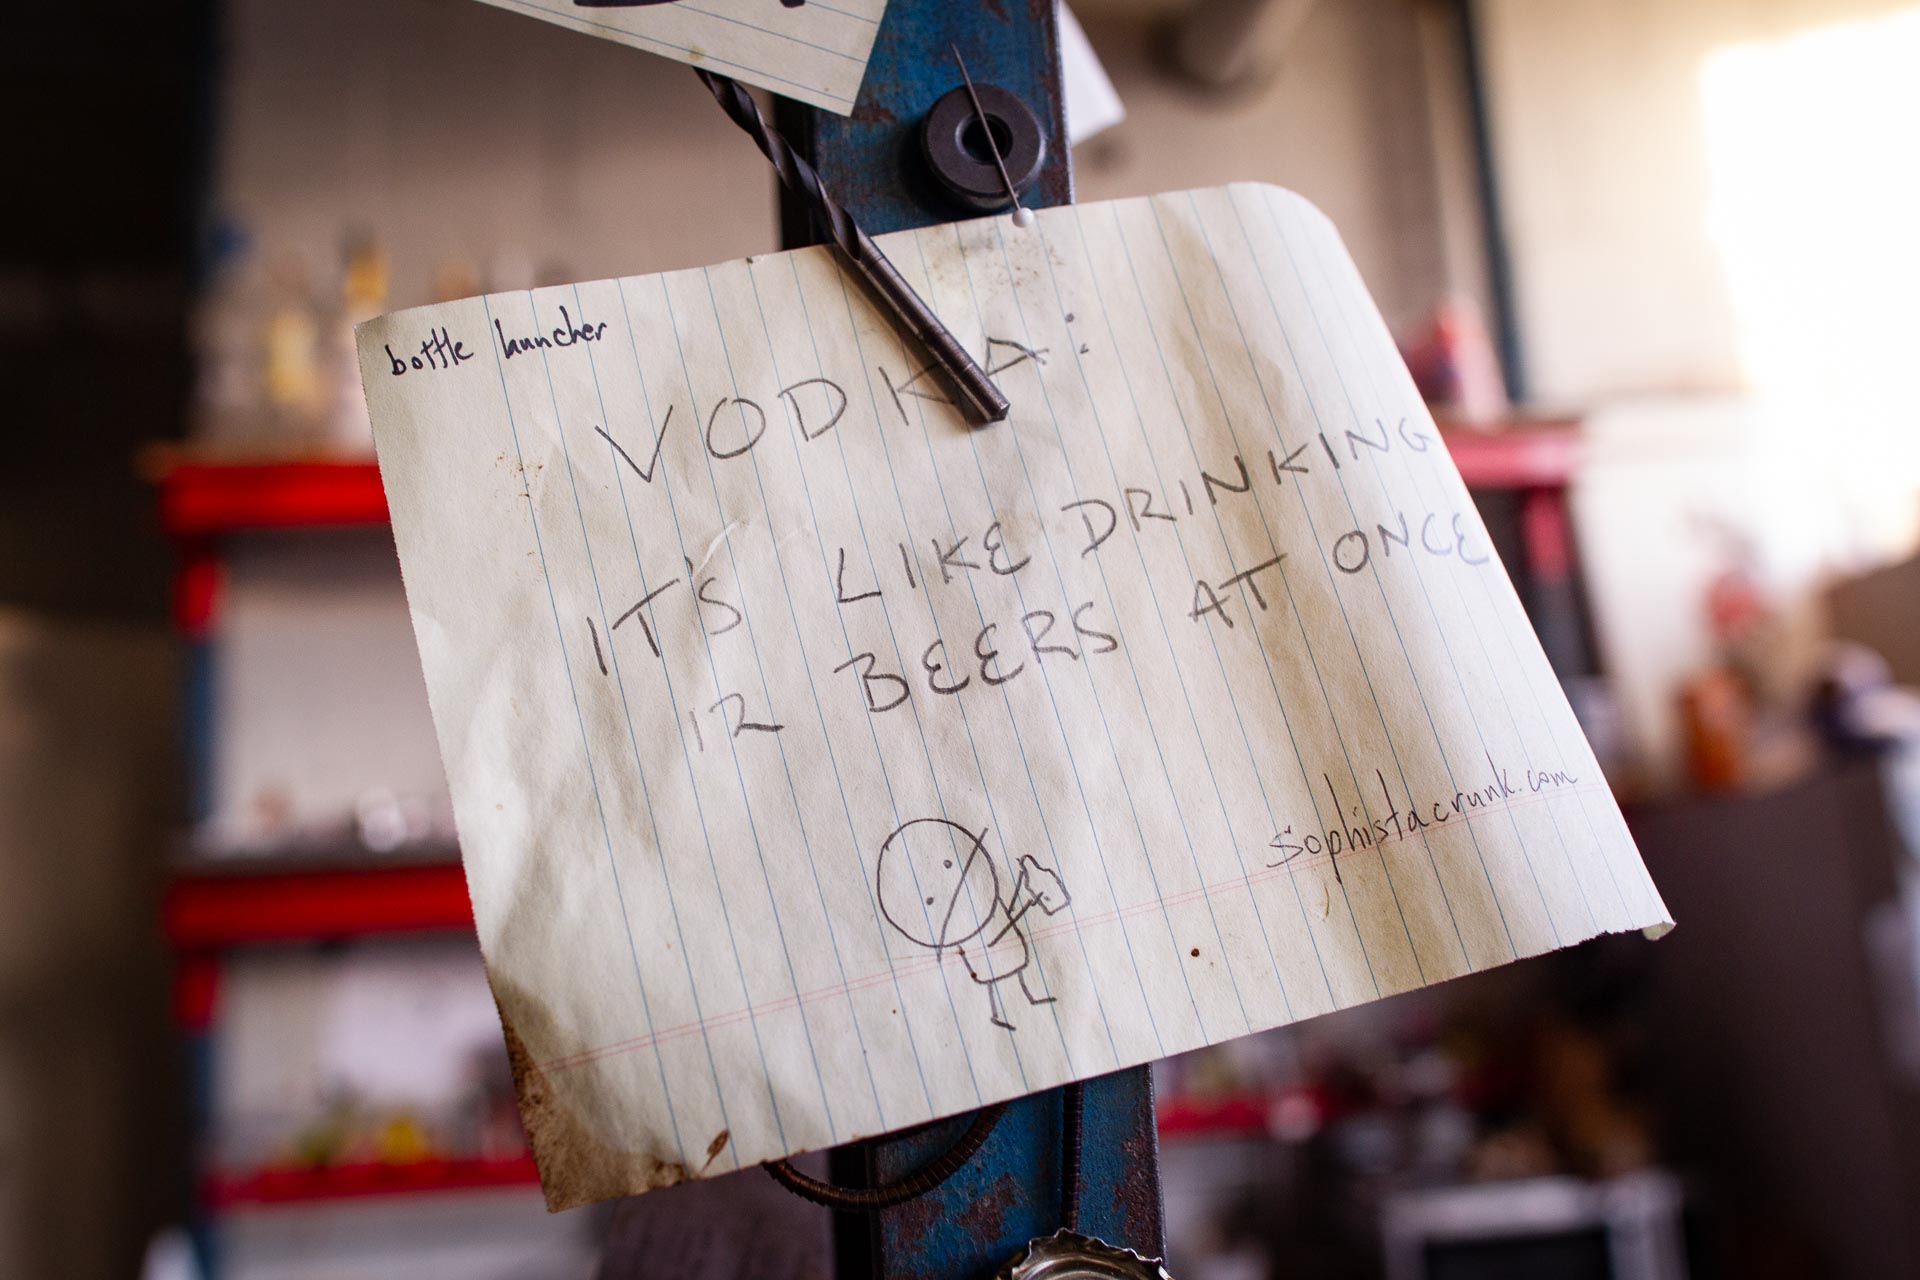 bottle launcher
VODKA:
IT'S LIKE DRINKING
12 BEERS AT ONCE
sophistacrunk.com